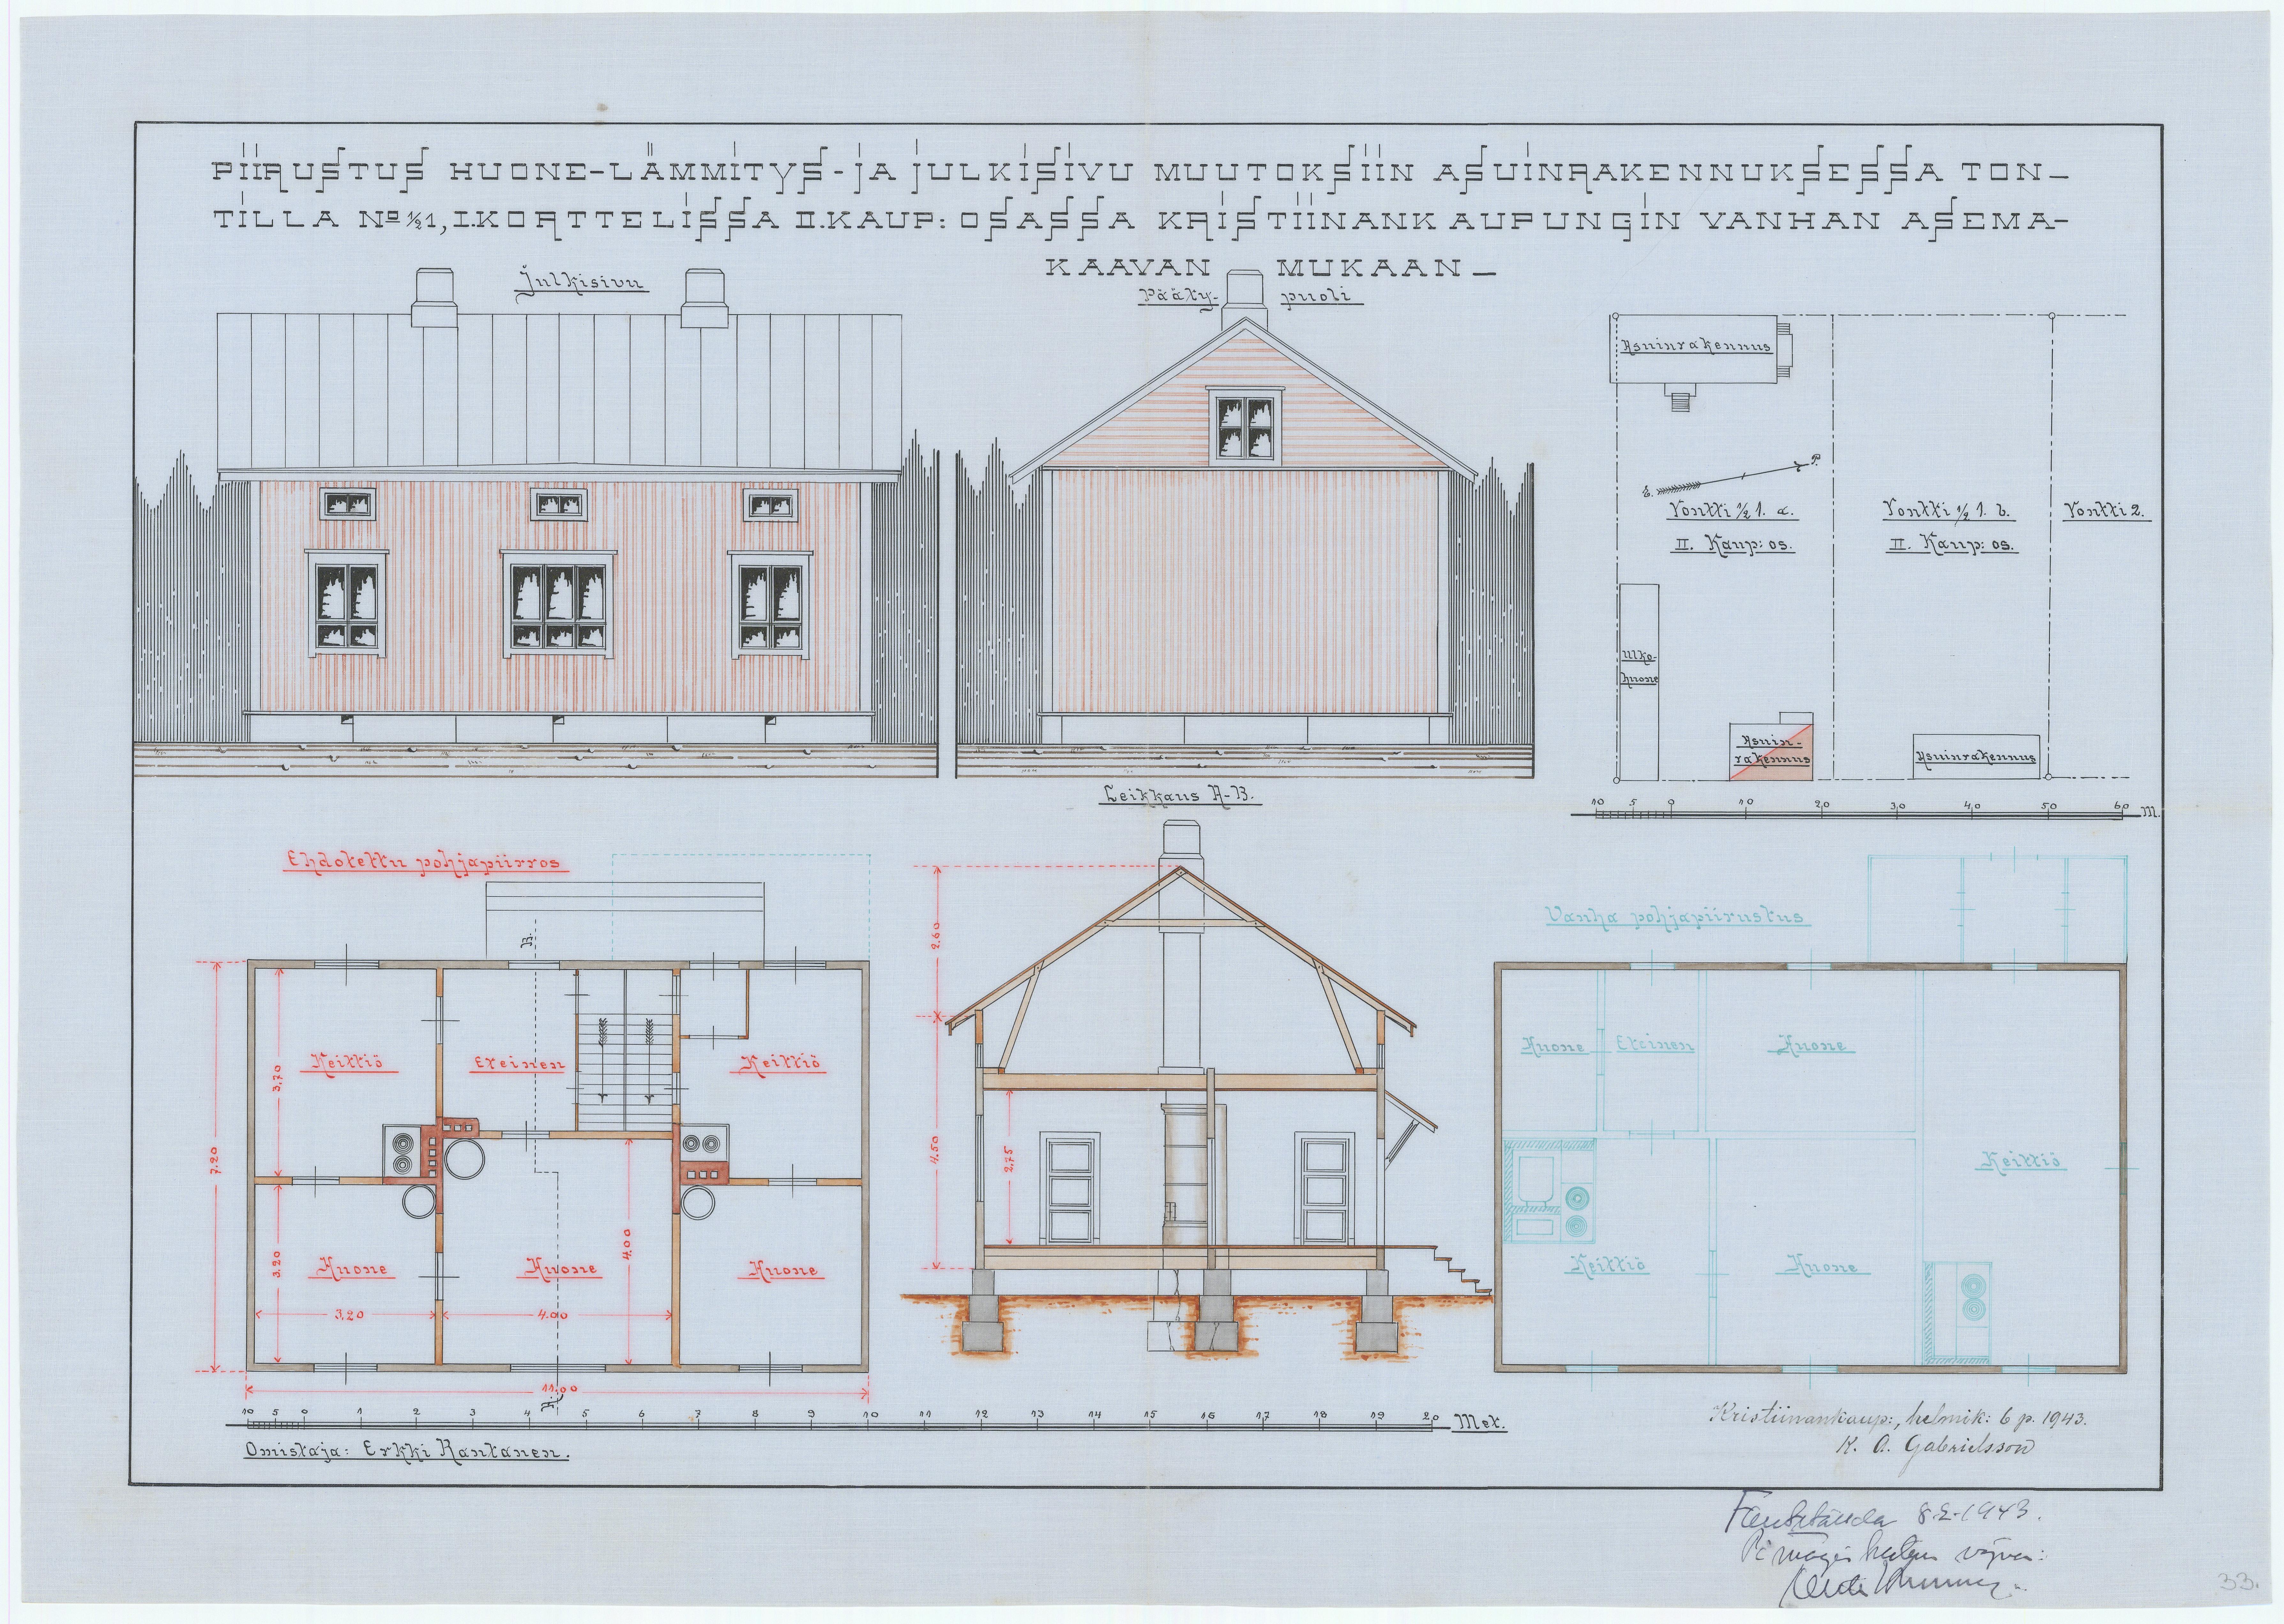 PIIRUSTUS HUONE-LÄMMITYS-JA JULKISIVU MUUTOKSIIN ASUINRAKENNUKSESSA TON-
TILLA No ½1, I.KORTTELISSA II.KAUP: OSASSA KRISTIINANKAUPUNGIN VANHAN ASEMA-
KAAVAN MUKAAN-
Julkisivu
Pääty-puoli
Asuinrakennus
P.
E.
Tontti ½ 1. a.
II. Kaup: os.
Tontti ½ 1. b.
II. Kaup: os.
Tontti 2.
Ulko-
huone
Asuin-
rakennus
Asuinrakennus
10 5 0 10 20 30 40 50 60 M.
Leikkaus A-B.
Ehdotettu pohjapiirros
B.
Keittiö
Eteinen
Keittiö
3,70
7.20
3.20
Huone
Huone
Huone
4.00
3,20
4.00
11.00
A.
2.60
4.50
2,75
Vanha pohjapiirustus
Huone
Eteinen
Huone
Keittiö
Keittiö
Huone
10 5 0 1 2 3 4 5 6 7 8 9 10 11 12 13 14 15 16 17 18 19 20 Met.
Omistaja: Erkki Rantanen.
Kristiinankaup:, helmik: 6 p. 1943.
K. A. Gabrielsson
8.2.1943.
33.